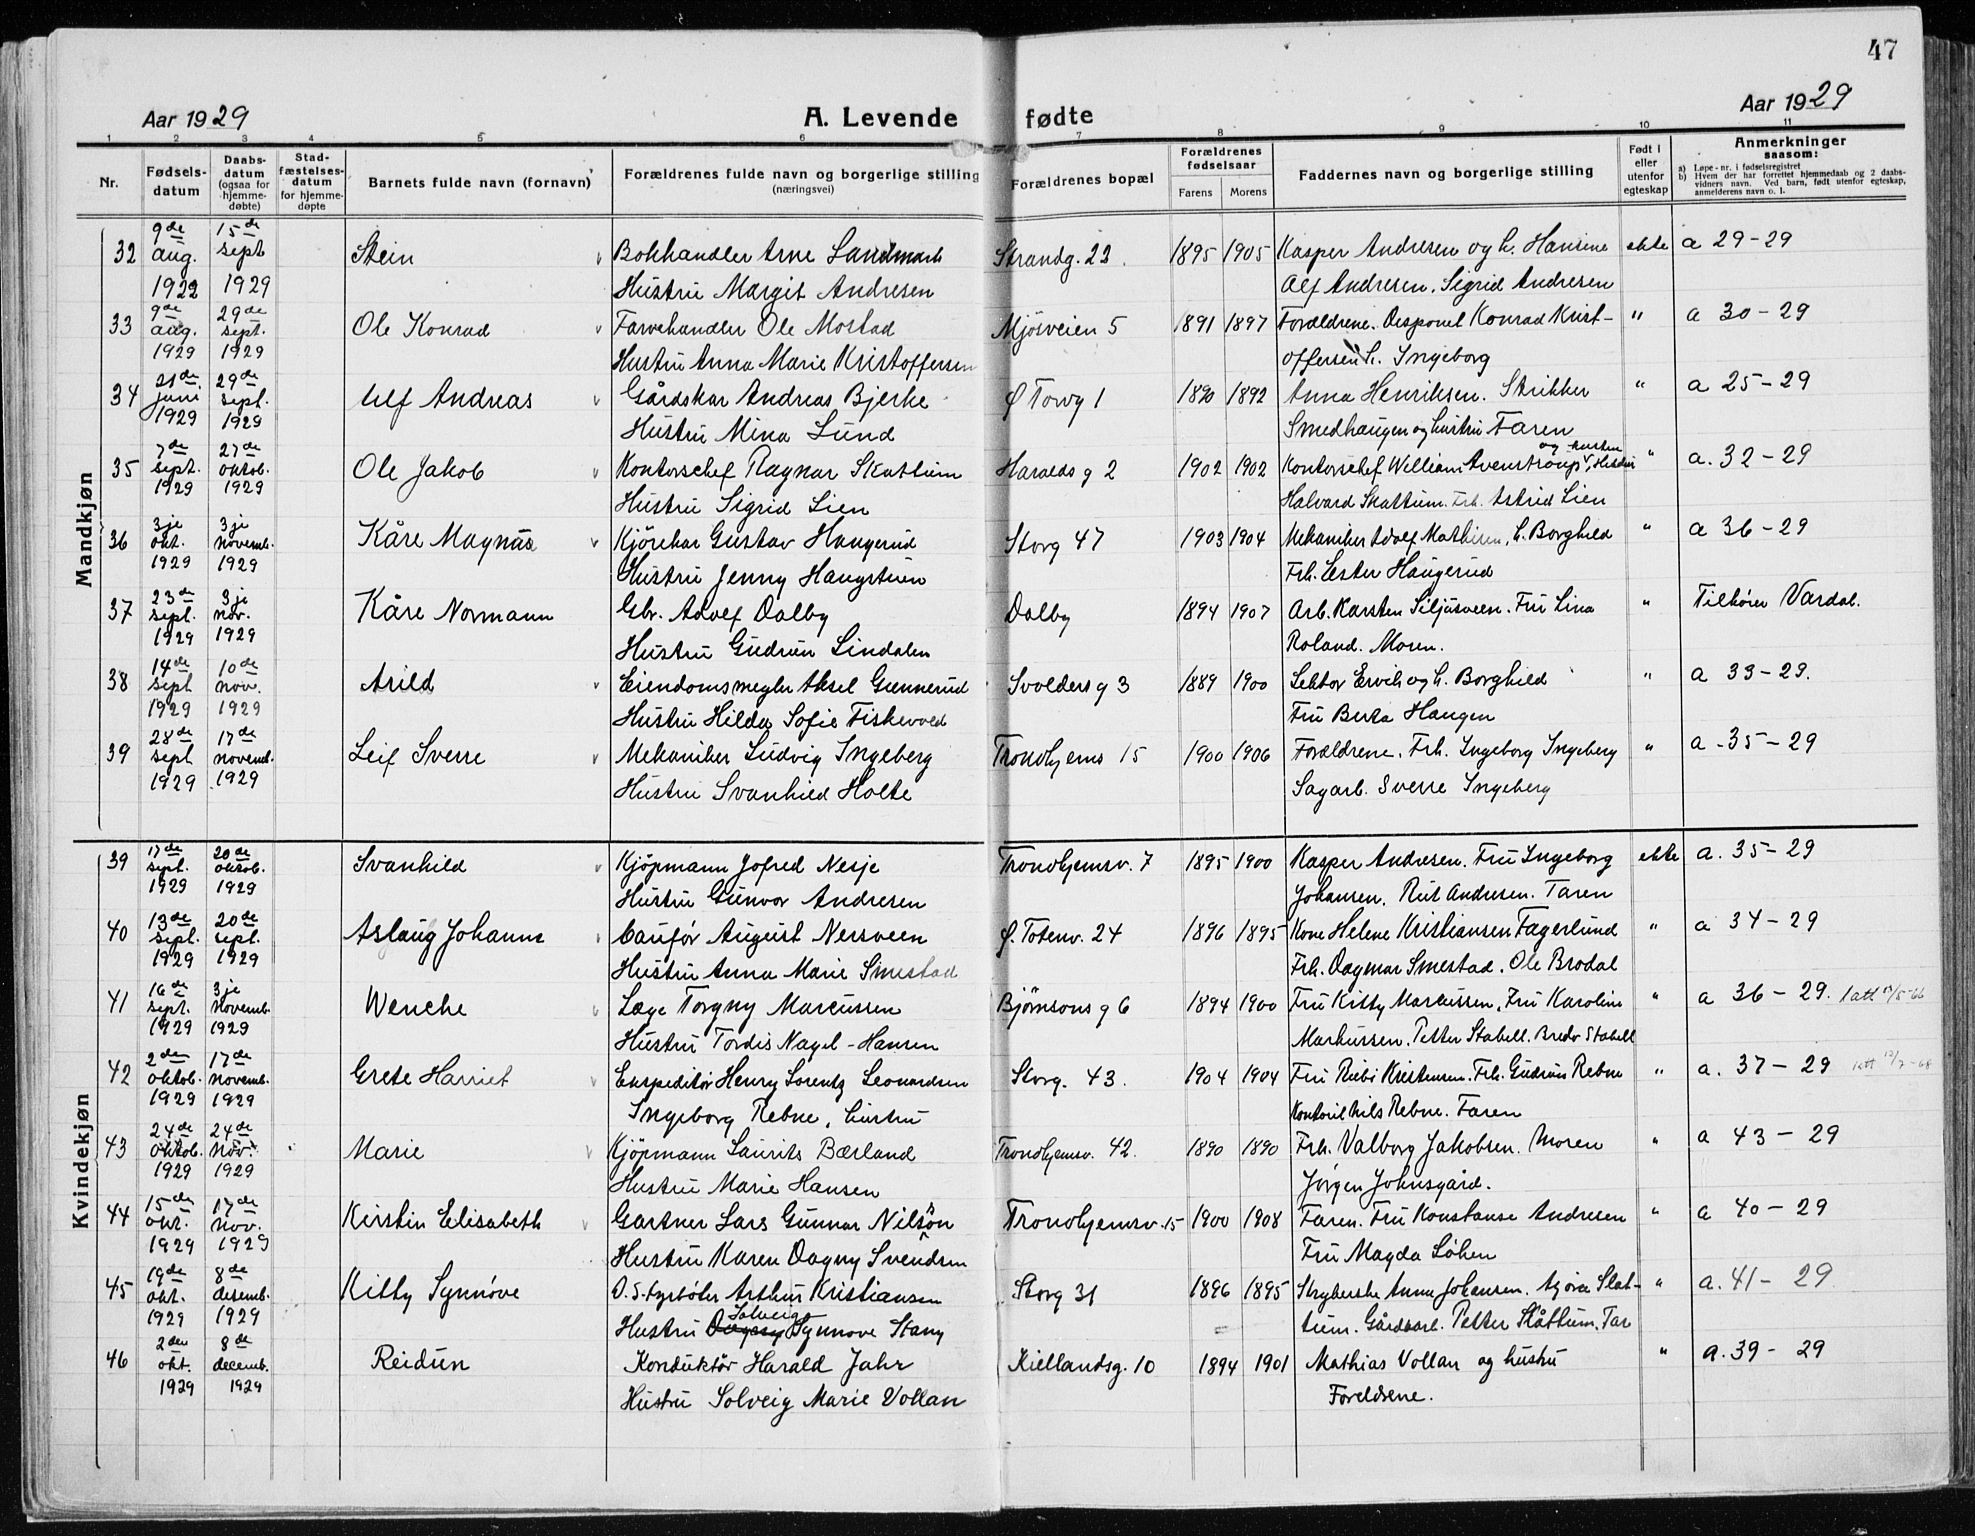 47
Aar 1929
A. Levende fødte
Aar 1929
1 2 3 4 5 6 7 8 9 10 11
Nr.
Fødsels-
datum
Daabs-
datum
(ogsaa for
hjemme-
døbte)
Stad-
fæstelses-
datum
for hjemme-
døpte
Barnets fulde navn (fornavn)
Forældrenes fulde navn og borgerlige stilling
(næringsvei)
Forældrenes bopæl
Forældrenes
fødselsaar
Farens Morens
Faddernes navn og borgerlige stilling
Født i
eller
utenfor
egteskap
Anmerkninger
saasom:
a) Løpe-nr. i fødselsregistret
b) Hvem der har forrettet hjemmedaab og 2 daabs-
vidners navn. Ved barn, født utenfor egteskap,
anmelderens navn o. l.
Mandkjøn
32 9de aug. 1922 15de sept 1929 Stein Bokhandler Arne Landmark Strandg. 23. 1895 1905 Kasper Andresen og h. Hansine ekte a 29-29
Hustru Margit Andresen Alf Andresen. Sigrid Andresen
33 9de aug. 1929 29de sept. 1929 Ole Konrad Farvehandler Ole Mostad Mjøsveien 5 1891 1897 Forældrene. Disponet Konrad Krist- " a 30-29
Hustru Anna Marie Kristoffersen offersen h. Ingeborg
34 21de juni 1929 29de sept. 1929 Ulf Andreas Gårdskar Andreas Bjerke Ø Torvg 1 1890 1892 Anna Henriksen. Skrikker " a 25-29
Hustru Mina Lund Smedhaugen og hustru Faren
35 7de sept. 1929 27de oktob. 1929 Ole Jakob Kontorschef Ragnar Skattum Haralds g 2 1902 1902 Kontorschef William Avenstroup og hustru, " a. 32-29
Hustru Sigrid Lien Halvard Skattum. Frk. Astrid Lien
36 3je okt. 1929 3je novemb. 1929 Kåre Magnus Kjørekar Gustav Haugerud Storg 47 1903 1904 Mekaniker Adolf Mathisen, h. Borghild " a 36-29
Hustru Jenny Haugsteien Frk. Ester Haugerud
37 23de sept. 1929 3je nov. 1929 Kåre Normann Gbr. Adolf Dalby Dalby 1894 1907 Arb. Karsten Siljusveen. Fru Lina " Tilhører Vardal.
Hustru Gudrun Lindalen Roland. Moren.
38 14de sept 1929 10de nov. 1929 Arild Eiendomsmegler Aksel Gunnerud Svolders g 3 1889 1900 Lektor Ervik og h. Borghild " a 33-29.
Hustru Hilda Sofie Fiskevold Fru Berta Haugen
39 28de sept 1929 17de novemb. 1929 Leif Sverre Mekaniker Ludvig Ingeberg Trondhjems 15 1900 1906 Forældrene. Frk. Ingeborg Ingeberg " a.35-29
Hustru Svanhild Holte Sagarb. Sverre Ingeberg
Kvindekjøn
39 17de sept. 1929 20de oktob. 1929 Svanhild Kjøpmann Jofred Nesje Trondhjemsv. 7 1895 1900 Kasper Andresen. Fru Ingeborg ekte a. 35-29
Hustru Gunvor Andresen Johansen. Rut Andresen. Faren
40 13de sept. 1929 20de sept. 1929 Aslaug Johanne Caufør August Nersveen Ø. Totenv. 24 1896 1895 Kone Helene Kristiansen Fagerlund " a 34-29
Hustru Anna Marie Smestad Frk. Dagmar Smestad. Ole Brodal
41 16de sept. 1929 3je Novemb. 1929 Wenche Læge Torgny Marcussen Bjørnsons g 6 1894 1900 Fru Kitty Marcussen, Fru Karoline " a 36-29.
Hustru Tordis Nagel-Hansen Markussen. Petter Stabell. Bredo Stabell
42 2den oktob. 1929 17de novemb. 1929 Grete Harriet Ekspeditør Henry Lorentz Leonardsen Storg. 43. 1904 1904 Fru Bibi Kristensen. Frk. Gudrun Rebne " a. 37-29
Ingeborg Rebne, hustru Nils Rebne. Faren
43 24de oktob. 1929 24de Nov. 1929 Marie Kjøpmann Laurits Bærland Trondhjemsv. 42. 1890 1890 Frk. Valborg Jakobsen. Moren " a 43-29
Hustru Marie Hansen Jørgen Johnsgård.
44 15de okt. 1929 17de nov. 1929 Kirstin Elisabeth Gartner Lars Gunnar Nilsön Trondhjemsv. 15 1900 1908 Faren. Fru Konstanse Andresen " a 40-29
Hustru Karen Dagny Svendsen Fru Magda Løken
45 19de okt. 1929 8de desemb. 1929 Kitty Synnøve O.S. fyrbøter Arthur Kristiansen Storg 31 1896 1895 Strykerske Anna Johansen. Gjora Slat- " a. 41-29
Hustru Solveig Synnøve Stang tum. Gårdsarb. Petter Slåttum. Far
46 2den okt. 1929 8de decemb. 1929 Reidun Konduktør Harald Jahr Kiellandsg. 10 1894 1901 Mathias Vollan og hustru " a. 39-29
Hustru Solveig Marie Vollan Foreldrene.